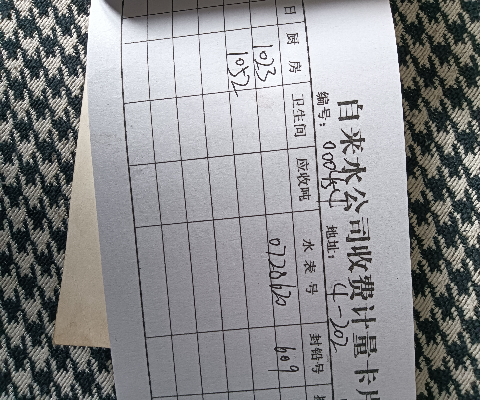 自来水公司收费计量卡片
编号: 地址: 4-202
日 厨房 卫生间 应收吨 水表号 封铅号
1023 0720620 609
1052